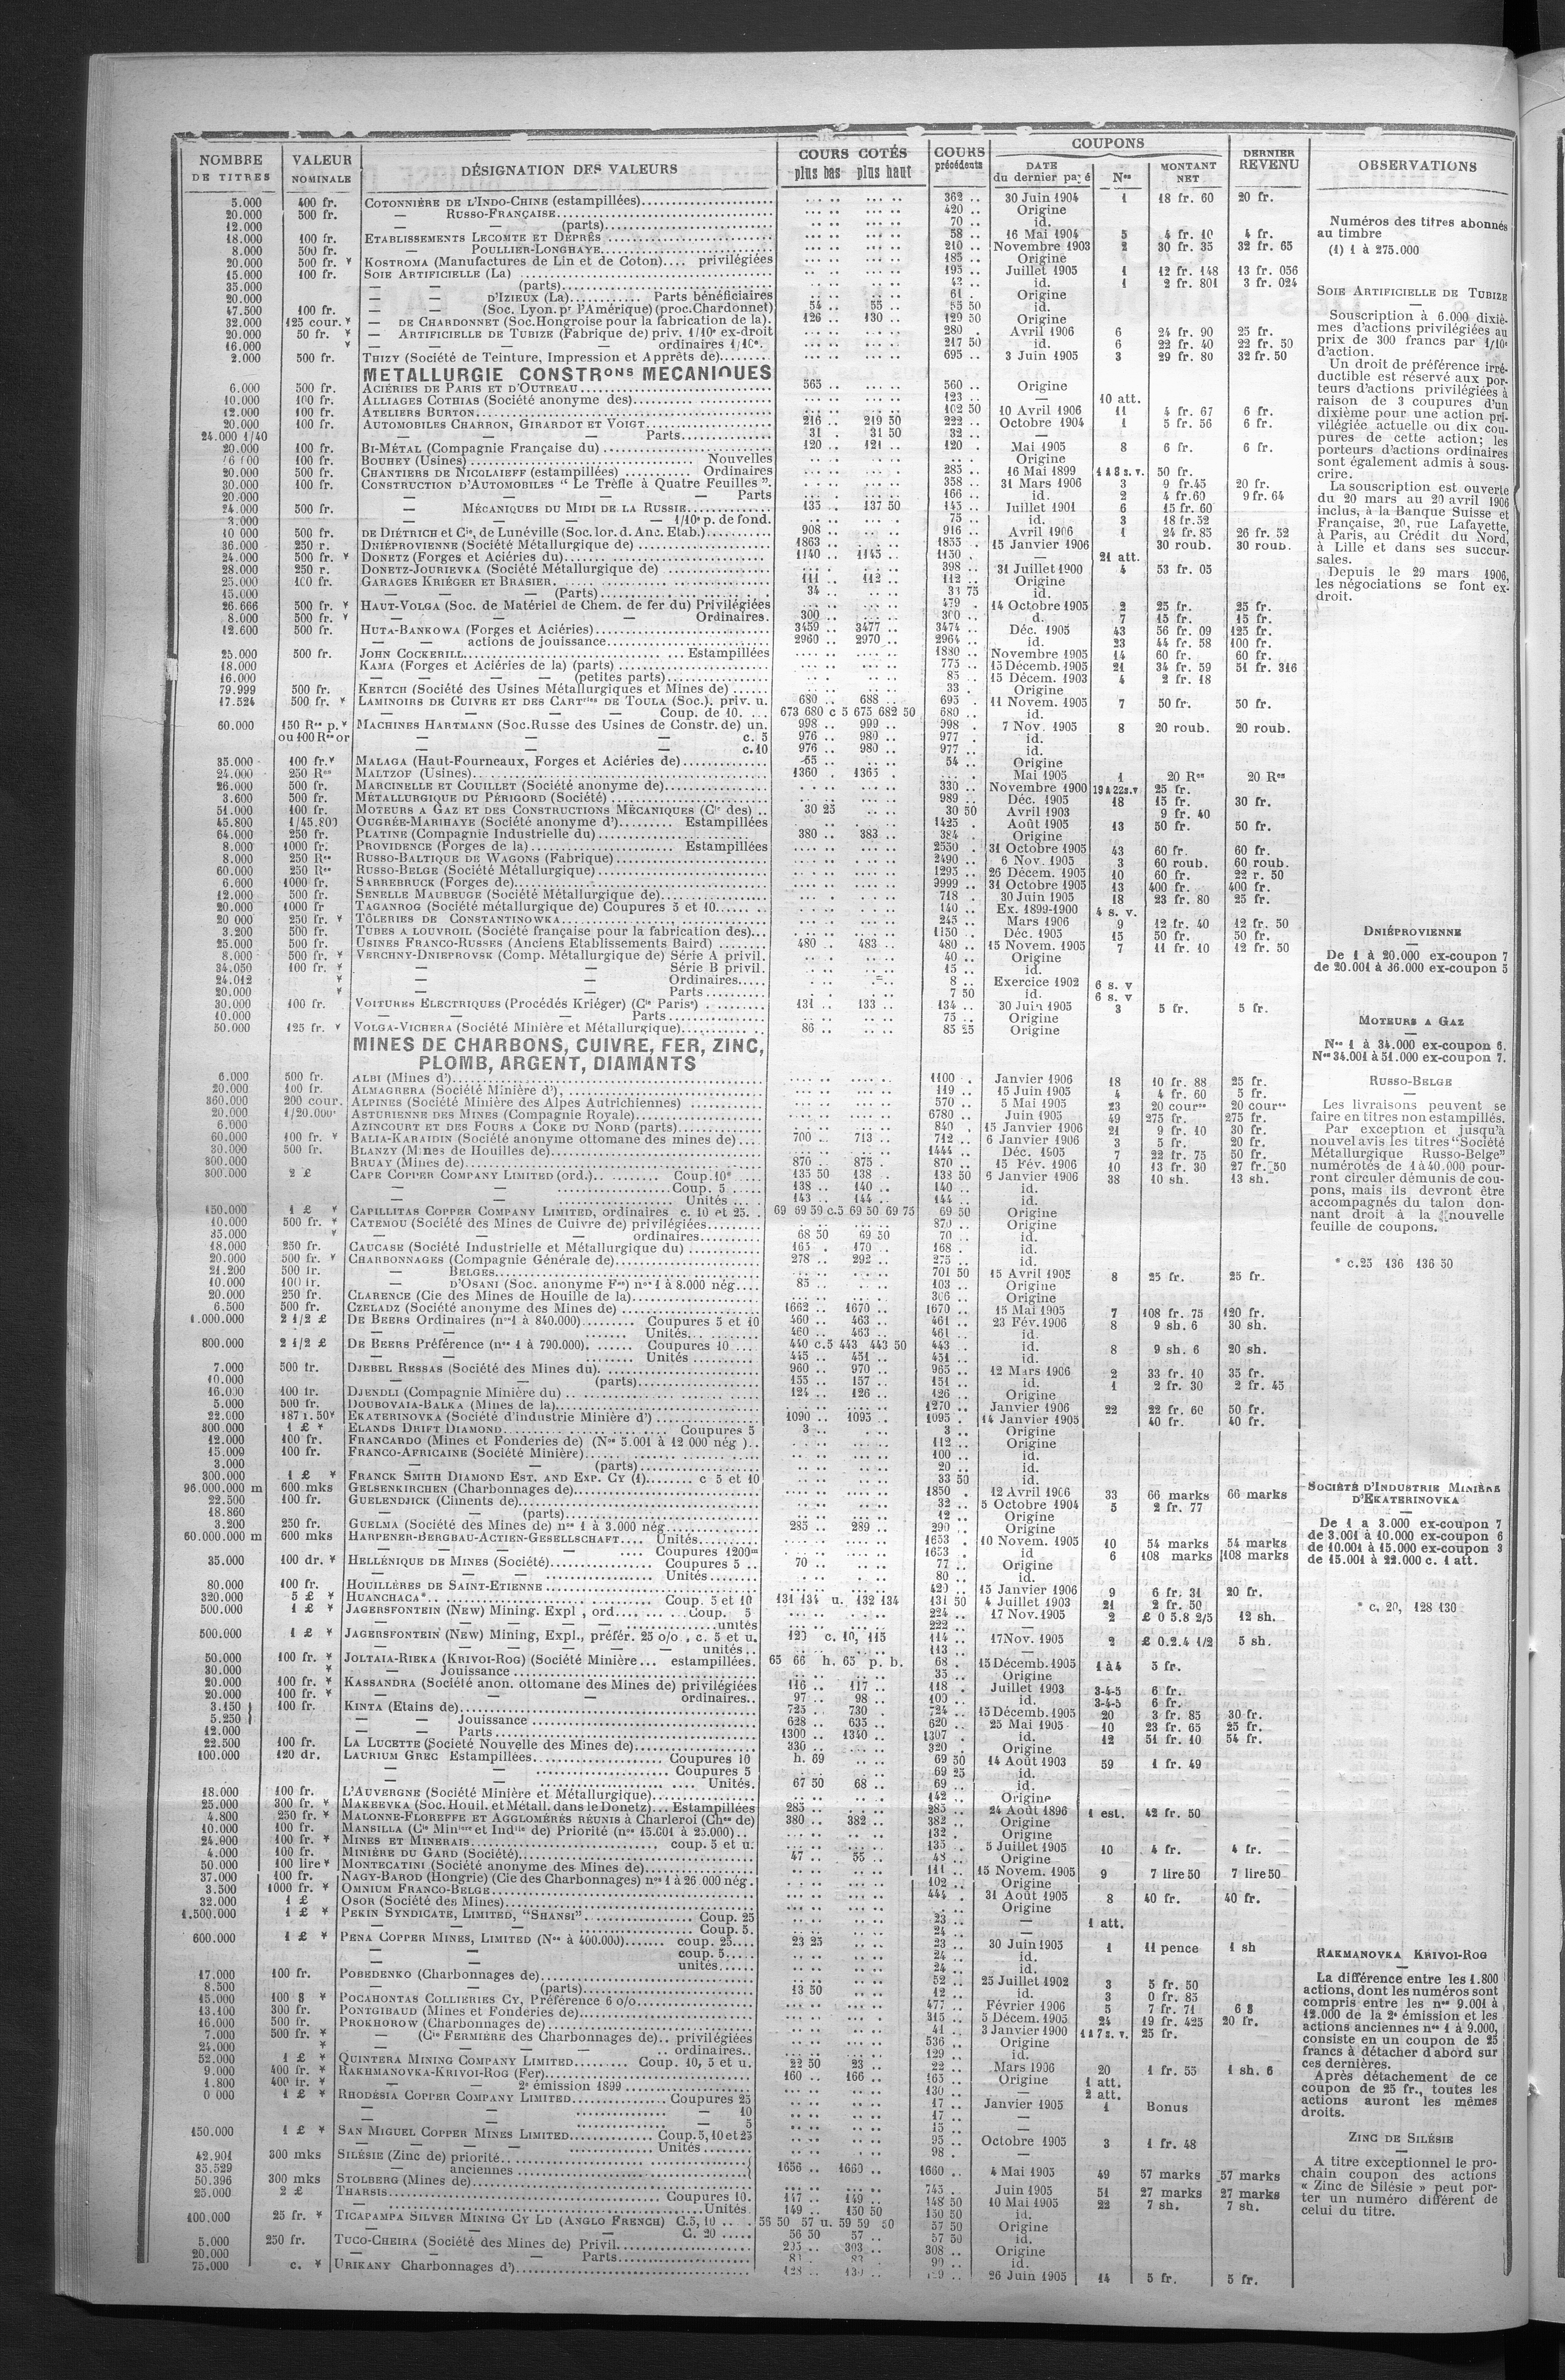 NOMBRE DE TITRES | VALEUR NOMINALE | DÉSIGNATION DES VALEURS | COURS COTÉS plus bas plus haut | COURS précédents | COUPONS DATE du dernier payé | Nos | MONTANT NET | DERNIER REVENU | OBSERVATIONS
5.000 400 fr. COTONNIÈRE DE L'INDO-CHINE (estampillées) 362 .. 30 Juin 1904 1 18 fr. 60 20 fr.
20.000 500 fr. — RUSSO-FRANÇAISE 420 .. Origine
12.000 — (parts) 70 .. id.
18.000 100 fr. ETABLISSEMENTS LECOMTE ET DEPRÈS 58 .. 16 Mai 1904 5 4 fr. 10 4 fr.
8.000 500 fr. — POULLIER-LONGHAYE 210 .. Novembre 1903 2 30 fr. 35 32 fr. 65
20.000 500 fr. * KOSTROMA (Manufactures de Lin et de Coton).... privilégiées 185 .. Origine
15.000 100 fr. SOIE ARTIFICIELLE (La) 195 .. Juillet 1905 1 12 fr. 148 13 fr. 056
35.000 — — (parts) 42 .. id. 1 2 fr. 801 3 fr. 024
20.000 — — D'IZIEUX (La) Parts bénéficiaires 61 . Origine
47.500 100 fr. — — (Soc. Lyon. pr l'Amérique) (proc. Chardonnet) 54 .. 55 .. 55 50 id.
32.000 125 cour. * — DE CHARDONNET (Soc. Hongroise pour la fabrication de la). 126 .. 130 .. 129 50 Origine
20.000 50 fr. * — ARTIFICIELLE DE TUBIZE (Fabrique de) priv. 1/10e ex-droit 280 . Avril 1906 6 24 fr. 90 25 fr.
16.000 * — — — ordinaires 1/10e. 217 50 id. 6 22 fr. 40 22 fr. 50
2.000 500 fr. THIZY (Société de Teinture, Impression et Apprêts de) 695 .. 3 Juin 1905 3 29 fr. 80 32 fr. 50
METALLURGIE CONSTRons MECANIQUES
6.000 500 fr. ACIÉRIES DE PARIS ET D'OUTREAU 565 .. 560 .. Origine
10.000 100 fr. ALLIAGES COTHIAS (Société anonyme des) 123 .. — 10 att.
12.000 100 fr. ATELIERS BURTON 102 50 10 Avril 1906 11 4 fr. 67 6 fr.
20.000 100 fr. AUTOMOBILES CHARRON, GIRARDOT ET VOIGT 216 .. 219 50 222 .. Octobre 1904 1 5 fr. 56 6 fr.
24.000 1/40 — — — Parts 31 . 31 50 32 .. —
20.000 100 fr. BI-MÉTAL (Compagnie Française du) 120 .. 121 .. 120 . Mai 1905 8 6 fr. 6 fr.
100 fr. BOUHEY (Usines) Nouvelles Origine
20.000 500 fr. CHANTIERS DE NICOLAIEFF (estampillées) Ordinaires 285 .. 16 Mai 1899 1 à 8 s. v. 50 fr.
30.000 100 fr. CONSTRUCTION D'AUTOMOBILES “ Le Trèfle à Quatre Feuilles ”. 358 .. 31 Mars 1906 3 9 fr. 45 20 fr.
20.000 — — — Parts 166 .. id. 2 4 fr. 60 9 fr. 64
24.000 500 fr. — MÉCANIQUES DU MIDI DE LA RUSSIE 135 .. 137 50 143 .. Juillet 1901 6 15 fr. 60
3.000 — — — 1/10e p. de fond. 75 .. id. 3 18 fr. 52
10 000 500 fr. DE DIÉTRICH et Cie, de Lunéville (Soc. lor. d. Anc. Etab.) 908 .. 916 .. Avril 1906 1 24 fr. 85 26 fr. 52
36.000 250 r. DNIÉPROVIENNE (Société Métallurgique de) 1863 .. 1855 .. 15 Janvier 1906 30 roub. 30 roub.
24.000 500 fr. * DONETZ (Forges et Aciéries du) 1140 .. 1145 .. 1150 . — 21 att.
28.000 250 r. DONETZ-JOURIEVKA (Société Métallurgique de) 398 .. 31 Juillet 1900 4 53 fr. 05
25.000 100 fr. GARAGES KRIÉGER ET BRASIER 111 .. 112 .. 112 .. Origine
15.000 — — — (Parts) 34 .. 33 75 id.
26.666 500 fr. * HAUT-VOLGA (Soc. de Matériel de Chem. de fer du) Privilégiées 479 . 14 Octobre 1905 2 25 fr. 25 fr.
8.000 500 fr. * — — — Ordinaires. 300 .. 300 .. d. 7 15 fr. 15 fr.
12.600 500 fr. HUTA-BANKOWA (Forges et Aciéries) 3459 .. 3477 .. 3474 .. Déc. 1905 43 56 fr. 09 125 fr.
— — actions de jouissance 2960 .. 2970 .. 2964 .. id. 23 44 fr. 58 100 fr.
25.000 500 fr. JOHN COCKERILL Estampillées 1880 .. Novembre 1905 14 60 fr. 60 fr.
18.000 KAMA (Forges et Aciéries de la) (parts) 775 .. 15 Décemb. 1905 21 34 fr. 59 51 fr. 316
16.000 — — — (petites parts) 85 .. 15 Décem. 1903 4 2 fr. 18
79.999 500 fr. KERTCH (Société des Usines Métallurgiques et Mines de) 33 . Origine
17.524 500 fr. * LAMINOIRS DE CUIVRE ET DES CARTries DE TOULA (Soc.). priv. u. 680 .. 688 .. 695 . 11 Novem. 1905 7 50 fr. 50 fr.
— — — Coup. de 10. 673 680 c 5 675 682 50 680 .. id.
60.000 150 Res p. * MACHINES HARTMANN (Soc. Russe des Usines de Constr. de) un. 998 .. 999 .. 998 . 7 Nov. 1905 8 20 roub. 20 roub.
ou 100 Res or — — — c. 5 976 .. 980 .. 977 . id.
— — — c. 10 976 .. 980 .. 977 .. id.
35.000 100 fr. * MALAGA (Haut-Fourneaux, Forges et Aciéries de) 55 .. 54 .. Origine
24.000 250 Res MALTZOF (Usines) 1360 . 1365 . Mai 1905 1 20 Res 20 Res
26.000 500 fr. MARCINELLE ET COUILLET (Société anonyme de) 330 .. Novembre 1900 19 à 22 s.v 25 fr.
3.600 500 fr. MÉTALLURGIQUE DU PÉRIGORD (Société) 989 .. Déc. 1905 18 15 fr. 30 fr.
51.000 100 fr. MOTEURS A GAZ ET DES CONSTRUCTIONS MÉCANIQUES (Cie des) 30 25 30 50 Avril 1903 9 fr. 40
45.800 1/45.800 OUGRÉE-MARIHAYE (Société anonyme d') Estampillées 1425 . Août 1905 13 50 fr. 50 fr.
64.000 250 fr. PLATINE (Compagnie Industrielle du) 380 .. 383 .. 384 . Origine
8.000 1000 fr. PROVIDENCE (Forges de la) Estampillées 2550 . 31 Octobre 1905 43 60 fr. 60 fr.
8.000 250 Res RUSSO-BALTIQUE DE WAGONS (Fabrique) 2490 .. 6 Nov. 1905 3 60 roub. 60 roub.
60.000 250 Res RUSSO-BELGE (Société Métallurgique) 1295 .. 26 Décem. 1905 10 60 fr. 22 r. 50
6.000 1000 fr. SARREBRUCK (Forges de) 9999 .. 31 Octobre 1905 13 400 fr. 400 fr.
12.000 500 fr. SENELLE MAUBEUGE (Société Métallurgique de) 718 . 30 Juin 1905 18 23 fr. 80 25 fr.
20.000 1000 fr TAGANROG (Société métallurgique de) Coupures 5 et 10 140 .. Ex. 1899-1900 4 s. v.
20 000 250 fr. * TÔLERIES DE CONSTANTINOWKA 245 .. Mars 1906 9 12 fr. 40 12 fr. 50
3.200 500 fr. TUBES A LOUVROIL (Société française pour la fabrication des) 1150 .. Déc. 1905 15 50 fr. 50 fr.
25.000 500 fr. USINES FRANCO-RUSSES (Anciens Etablissements Baird) 480 .. 483 .. 480 .. 15 Novem. 1905 7 11 fr. 10 12 fr. 50
8.000 500 fr. * VERCHNY-DNIEPROVSK (Comp. Métallurgique de) Série A privil. 40 .. Origine
34.050 100 fr. * — — Série B privil. 15 .. id.
24.012 * — — Ordinaires 8 .. Exercice 1902 6 s. v
20.000 * — — Parts 7 50 id. 6 s. v
30.000 100 fr. VOITURES ELECTRIQUES (Procédés Kriéger) (Cie Parise) 131 .. 133 .. 134 .. 30 Juin 1905 3 5 fr. 5 fr.
10.000 — — — Parts 75 .. Origine
50.000 125 fr. * VOLGA-VICHERA (Société Minière et Métallurgique) 86 .. 85 25 Origine
MINES DE CHARBONS, CUIVRE, FER, ZINC,
PLOMB, ARGENT, DIAMANTS
6.000 500 fr. ALBI (Mines d') 1100 . Janvier 1906 18 10 fr. 88 25 fr.
20.000 100 fr. ALMAGRERA (Société Minière d') 119 .. 15 Juin 1905 4 4 fr. 60 5 fr.
360.000 200 cour. ALPINES (Société Minière des Alpes Autrichiennes) 570 .. 5 Mai 1905 23 20 coures 20 coures
20.000 1/20.000e ASTURIENNE DES MINES (Compagnie Royale) 6780 .. Juin 1905 49 275 fr. 275 fr.
6.000 AZINCOURT ET DES FOURS A COKE DU NORD (parts) 840 . 15 Janvier 1906 21 9 fr. 10 30 fr.
60.000 100 fr. * BALIA-KARAIDIN (Société anonyme ottomane des mines de) 700 .. 713 .. 712 .. 6 Janvier 1906 3 5 fr. 20 fr.
30.000 500 fr. BLANZY (Mines de Houilles de) 1444 .. Déc. 1905 7 22 fr. 75 50 fr.
300.000 BRUAY (Mines de) 870 .. 875 . 870 .. 15 Fév. 1906 10 13 fr. 30 27 fr. 50
300.000 2 £ CAPE COPPER COMPANY LIMITED (ord.) Coup. 10* 135 50 138 . 138 50 6 Janvier 1906 38 10 sh. 13 sh.
— — Coup. 5 138 .. 140 .. 140 .. id.
— — Unités 143 .. 144 .. 144 .. id.
150.000 1 £ * CAPILLITAS COPPER COMPANY LIMITED, ordinaires c. 10 et 25. 69 69 59 c.5 69 50 69 75 69 50 Origine
10.000 500 fr. * CATEMOU (Société des Mines de Cuivre de) privilégiées 870 .. Origine
35.000 * — — — ordinaires 68 50 69 50 70 .. id.
18.000 250 fr. CAUCASE (Société Industrielle et Métallurgique du) 165 . 170 .. 168 . id.
20.000 500 fr. * CHARBONNAGES (Compagnie Générale de) 278 .. 292 .. 275 .. id.
21.200 500 fr. — BELGES 701 50 15 Avril 1905 8 25 fr. 25 fr.
10.000 100 fr. — D'OSANI (Soc. anonyme Fse) nos 1 à 8.000 nég 85 .. 103 .. Origine
20.000 250 fr. CLARENCE (Cie des Mines de Houille de la) 306 .. Origine
6.500 500 fr. CZELADZ (Société anonyme des Mines de) 1662 .. 1670 .. 1670 .. 15 Mai 1905 7 108 fr. 75 120 fr.
1.000.000 2 1/2 £ DE BEERS Ordinaires (nos 1 à 840.000) Coupures 5 et 10 460 .. 463 .. 461 .. 23 Fév. 1906 8 9 sh. 6 30 sh.
— — Unités 460 .. 463 .. 461 .. id.
800.000 2 1/2 £ DE BEERS Préférence (nos 1 à 790.000) Coupures 10 440 c.5 443 443 50 443 .. id. 8 9 sh. 6 20 sh.
— — Unités 445 .. 451 .. 451 .. id.
7.000 500 fr. DJEBEL RESSAS (Société des Mines du) 960 .. 970 .. 965 .. 12 Mars 1906 2 33 fr. 10 35 fr.
10.000 — — (parts) 155 .. 157 .. 151 .. id. 1 2 fr. 30 2 fr. 45
16.000 100 fr. DJENDLI (Compagnie Minière du) 124 .. 126 .. 126 .. Origine
5.000 500 fr. DOUBOVAIA-BALKA (Mines de la) 1270 .. Janvier 1906 22 22 fr. 60 50 fr.
22.000 187 r. 50 * EKATERINOVKA (Société d'industrie Minière d') 1090 .. 1095 . 1095 . 14 Janvier 1905 40 fr. 40 fr.
300.000 1 £ * ELANDS DRIFT DIAMOND Coupures 5 3 .. 3 .. Origine
12.000 100 fr. FRANCARDO (Mines et Fonderies de) (Nos 5.001 à 12 000 nég ) 112 .. Origine
15.000 100 fr. FRANCO-AFRICAINE (Société Minière) 100 .. id.
3.000 — — (parts) 20 .. id.
300.000 1 £ * FRANCK SMITH DIAMOND EST. AND EXP. CY (1) c 5 et 10 33 50 id.
96.000.000 m 600 mks GELSENKIRCHEN (Charbonnages de) 1850 . 12 Avril 1906 33 66 marks 66 marks
22.500 100 fr. GUELENDJICK (Ciments de) 32 .. 5 Octobre 1904 5 2 fr. 77
18.860 — — (parts) 12 .. Origine
3.200 250 fr. GUELMA (Société des Mines de) nos 1 à 3.000 nég 285 .. 289 .. 290 .. Origine
60.000.000 m 600 mks HARPENER-BERGBAU-ACTIEN-GESELLSCHAFT Unités 1653 . 10 Novem. 1905 10 54 marks 54 marks
— — — Coupures 1200m 1653 . id 6 108 marks 108 marks
35.000 100 dr. * HELLÉNIQUE DE MINES (Société) Coupures 5 70 .. 77 .. Origine
— — — Unités 80 .. id.
80.000 100 fr. HOUILLÈRES DE SAINT-ETIENNE 420 .. 15 Janvier 1906 9 6 fr. 31 20 fr.
320.000 5 £ * HUANCHACA* Coup. 5 et 10 131 134 u. 132 134 131 50 4 Juillet 1903 21 2 fr. 50
500.000 1 £ * JAGERSFONTEIN (NEW) Mining. Expl , ord Coup. 5 224 .. 17 Nov. 1905 2 £ 0 5.8 2/5 12 sh.
— — — unités 222 .. —
500.000 1 £ * JAGERSFONTEIN (NEW) Mining, Expl., préfér. 25 o/o , c. 5 et u. 120 c. 10, 115 114 .. 17 Nov. 1905 2 £ 0.2.4 1/2 5 sh.
— — — unités 113 .. —
50.000 100 fr. * JOLTAIA-RIEKA (KRIVOI-ROG) (Société Minière estampillées. 65 66 h. 65 p. b. 68 . 15 Décemb. 1905 1 à 4 5 fr.
30.000 * — Jouissance 35 .. Origine
20.000 100 fr. * KASSANDRA (Société anon. ottomane des Mines de) privilégiées 116 .. 117 .. 118 . Juillet 1903 3-4-5 6 fr.
20.000 100 fr. * — — — ordinaires 97 .. 98 .. 100 .. id. 3-4-5 6 fr.
3.150 } 100 fr. KINTA (Etains de) 725 .. 730 . 724 .. 15 Décemb. 1905 20 3 fr. 85 30 fr.
5.250 } — — Jouissance 628 .. 635 .. 620 .. 25 Mai 1905 10 23 fr. 65 25 fr.
12.000 — — Parts 1300 .. 1340 .. 1307 . id. 12 51 fr. 10 54 fr.
22.500 100 fr. LA LUCETTE (Société Nouvelle des Mines de) 330 .. 320 . Origine
100.000 120 dr. LAURIUM GREC Estampillées Coupures 10 h. 69 69 50 14 Août 1903 59 1 fr. 49
— — Coupures 5 69 25 id.
— — Unités. 67 50 68 .. 69 .. id.
18.000 100 fr. L'AUVERGNE (Société Minière et Métallurgique) 142 .. Origine
25.000 300 fr. * MAKEEVKA (Soc. Houil. et Métall. dans le Donetz) Estampillées 285 .. 285 .. 24 Août 1896 1 est. 42 fr. 50
4.800 250 fr. * MALONNE-FLOREFFE ET AGGLOMÉRÉS RÉUNIS à Charleroi (Chges de) 380 .. 382 .. 382 .. Origine
10.000 100 fr. MANSILLA (Cie Minière et Indlle de) Priorité (nos 15.001 à 25.000) 132 . Origine
24.000 100 fr. * MINES ET MINERAIS coup. 5 et u. 135 .. 5 Juillet 1905 10 4 fr. 4 fr.
4.000 100 fr. MINIÈRE DU GARD (Société) 47 .. 55 .. 48 .. Origine
50 000 100 lire * MONTECATINI (Société anonyme des Mines de) 111 .. 15 Novem. 1905 9 7 lire 50 7 lire 50
37.000 100 fr. NAGY-BAROD (Hongrie) (Cie des Charbonnages) nos 1 à 26 000 nég. 102 .. Origine
3.500 1000 fr. * OMNIUM FRANCO-BELGE 444 . 31 Août 1905 8 40 fr. 40 fr.
32.000 1 £ OSOR (Société des Mines) Origine
1.500.000 1 £ * PEKIN SYNDICATE, LIMITED, “SHANSI” Coup. 25 23 .. — 1 att.
— — Coup. 5. 24 .. —
600.000 1 £ * PENA COPPER MINES, LIMITED (Nos à 400.000) coup. 25 23 25 23 .. 30 Juin 1905 1 11 pence 1 sh
— — coup. 5 24 .. id.
— — unités 24 .. id.
17.000 100 fr. POBEDENKO (Charbonnages de) 52 .. 25 Juillet 1902 3 5 fr. 50
8.500 — — (parts) 13 50 12 .. id. 3 0 fr. 85
15.000 100 $ * POCAHONTAS COLLIERIES CY, Préférence 6 o/o 477 .. Février 1906 5 7 fr. 71 6 $
13.100 300 fr. PONTGIBAUD (Mines et Fonderies de) 315 .. 5 Décem. 1905 24 19 fr. 425 20 fr.
16.000 500 fr. PROKHOROW (Charbonnages de) 41 .. 3 Janvier 1900 1 à 7 s. v. 25 fr.
7.000 500 fr. * — (Cie FERMIÈRE des Charbonnages de) privilégiées 536 .. Origine
24.000 * — — ordinaires 129 .. id.
52.000 1 £ * QUINTERA MINING COMPANY LIMITED Coup. 10, 5 et u. 22 50 23 .. 22 .. Mars 1906 20 1 fr. 55 1 sh. 6
9.000 400 fr. * RAKHMANOVKA-KRIVOI-ROG (Fer) 160 .. 166 .. 165 .. Origine 1 att.
1.800 400 fr. * — — 2e émission 1899 130 .. — 2 att.
0 000 1 £ * RHODESIA COPPER COMPANY LIMITED Coupures 25 17 .. Janvier 1905 1 Bonus
— — — 10 17 .. —
— — — 5 15 .. —
150.000 1 £ * SAN MIGUEL COPPER MINES LIMITED Coup. 5, 10 et 25 95 .. Octobre 1905 3 1 fr. 48
— — — Unités 98 . —
42.901 300 mks SILÉSIE (Zinc de) priorité
35.529 — — anciennes 1656 .. 1660 .. 1660 .. 4 Mai 1905 49 57 marks 57 marks
50.396 300 mks STOLBERG (Mines de) 745 .. Juin 1905 51 27 marks 27 marks
25.000 2 £ THARSIS Coupures 10. 147 .. 149 .. 148 50 10 Mai 1905 22 7 sh. 7 sh.
— Unités 149 .. 150 50 150 50 id.
100.000 25 fr. * TICAPAMPA SILVER MINING CY LD (ANGLO FRENCH) C.5, 10 56 50 57 u. 59 59 50 57 50 Origine
— — — C. 20 56 50 57 .. 57 50 id.
5.000 250 fr. TUCO-CHEIRA (Société des Mines de) Privil. 295 .. 303 .. 308 .. Origine
20.000 — — Parts 90 .. id.
75.000 c. * URIKANY Charbonnages d') 128 .. 130 .. 26 Juin 1905 14 5 fr. 5 fr.
Numéros des titres abonnés
au timbre
(1) 1 à 275.000
SOIE ARTIFICIELLE DE TUBIZE
Souscription à 6.000 dixiè-
mes d'actions privilégiées au
prix de 300 francs par 1/10e
d'action.
Un droit de préférence irré-
ductible est réservé aux por-
teurs d'actions privilégiées à
raison de 3 coupures d'un
dixième pour une action pri-
vilégiée actuelle ou dix cou-
pures de cette action; les
porteurs d'actions ordinaires
sont également admis à sous-
crire.
La souscription est ouverte
du 20 mars au 20 avril 1906
inclus, à la Banque Suisse et
Française, 20, rue Lafayette,
à Paris, au Crédit du Nord,
à Lille et dans ses succur-
sales.
Depuis le 29 mars 1906,
les négociations se font ex-
droit.
DNIÉPROVIENNE
De 1 à 20.000 ex-coupon 7
de 20.001 à 36.000 ex-coupon 5
MOTEURS A GAZ
Nos 1 à 34.000 ex-coupon 6.
Nos 34.001 à 51.000 ex-coupon 7.
RUSSO-BELGE
Les livraisons peuvent se
faire en titres non estampillés.
Par exception et jusqu'à
nouvel avis les titres “Société
Métallurgique Russo-Belge”
numérotés de 1 à 40.000 pour-
ront circuler démunis de cou-
pons, mais ils devront être
accompagnés du talon don-
nant droit à la nouvelle
feuille de coupons.
* c.25 136 136 50
SOCIÉTÉ D'INDUSTRIE MINIÈRE
D'EKATERINOVKA
De 1 a 3.000 ex-coupon 7
de 3.001 à 10.000 ex-coupon 6
de 10.001 à 15.000 ex-coupon 3
de 15.001 à 22.000 c. 1 att.
* c. 20, 128 130
RAKMANOVKA KRIVOI-ROG
La différence entre les 1.800
actions, dont les numéros sont
compris entre les nos 9.001 à
12.000 de la 2e émission et les
actions anciennes nos 1 à 9.000,
consiste en un coupon de 25
francs à détacher d'abord sur
ces dernières.
Après détachement de ce
coupon de 25 fr., toutes les
actions auront les mêmes
droits.
ZINC DE SILÉSIE
A titre exceptionnel le pro-
chain coupon des actions
« Zinc de Silésie » peut por-
ter un numéro différent de
celui du titre.